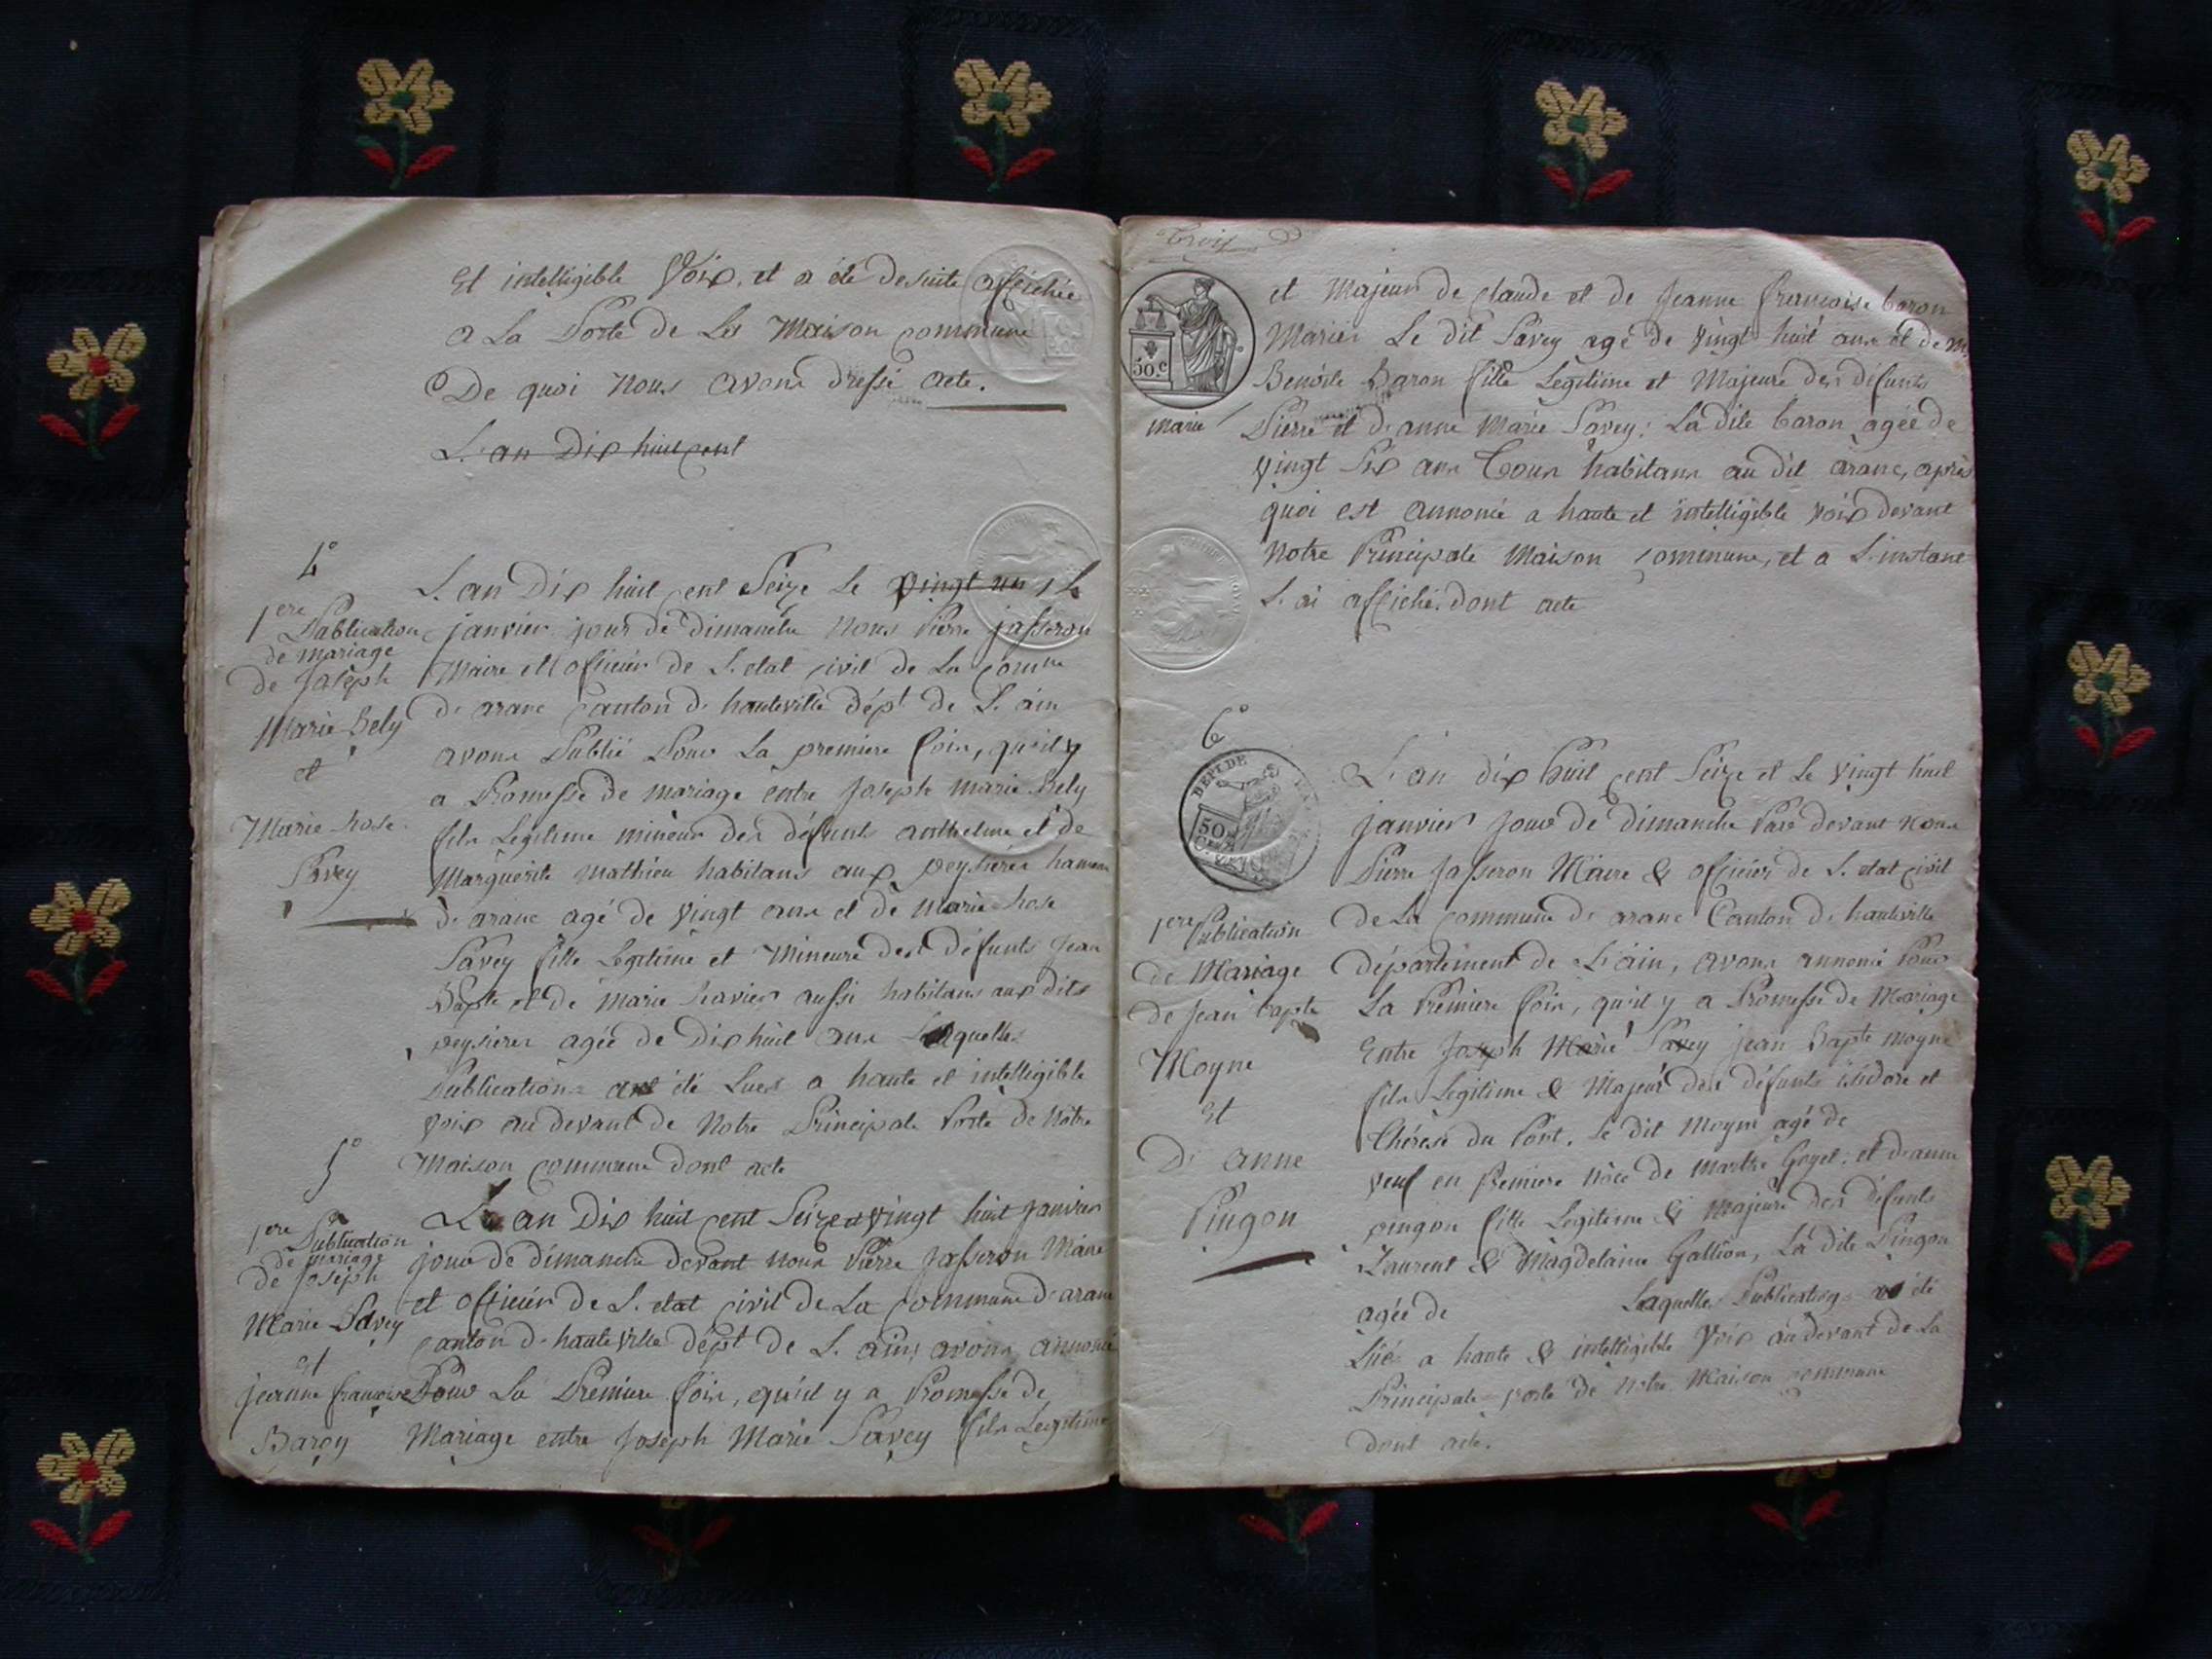 Et intelligible Voix, et a été desuite affichée
a La Porte de La Maison commune
De quoi Nous avons dressé acte.
L'an Dix huit cent
4°
1ere Publication
de mariage
de Joseph
Marie Bely
et
Marie Rose
Savey
L'an Dix huit cent Seize Le vingt un
janvier jour de dimanche Nous Pierre jasseron
Maire et officier de L'etat civil de La comune
d'aranc Canton d'hauteville dépt de L'ain
avons Publié Pour La premiere fois, qu'il y
a Promesse de mariage entre Joseph marie Bely
fils Legitime mineur des défunts anthelme et de
Marguerite Mathieu habitans aux peysieres hameau
d'aranc agé de vingt ans et de Marie Rose
Savey fille Legitime et Mineure des défunts Jean
Bapte et de Marie Savier aussi habitans aux dits
peysieres agée de Dix huit ans Laquelle
Publication a été Lues a haute et intelligible
voix au devant de Notre Principale Porte de Notre
Maison commune dont acte
5°
1ere Publication
de mariage
de Joseph
Marie Savey
et
jeanne françoise
Baron
L'an Dix huit cent Seize et vingt huit Janvier
jour de dimanche devant nous Pierre Jasseron Maire
et officier de L'etat civil de La Commune d'aranc
canton d'hauteville dépt de L'ain, avons annoncé
Pour La Premiere fois, qu'il y a Promesse de
Mariage entre Joseph Marie Savey fils Legitime
trois
50.c
marie
et Majeur de Claude et de Jeanne françoise baron
Mariés Le dit Savey agé de vingt huit ans et de
Benoite Baron fille Legitime et Majeure des défunts
Pierre et d'anne Marie Savey; La dite baron agée de
vingt Six ans Tous habitans au dit aranc, après
quoi est annoncé a haute et intelligible voix devant
Notre Principale Maison commune, et a L'instant
L'ai affiché. dont acte
6°
DEPT. DE
50
1ere Publication
de Mariage
de Jean Bapte
Moyne
Et
D'anne
Pingon
L'an dix huit cent Seize et Le vingt huit
janvier Jour de dimanche Par devant nous
Pierre Jasseron Maire & officier de L'etat civil
de La commune d'aranc Canton d'hauteville
département de L'ain, avons annoncé Pour
La Premiere fois, qu'il y a Promesse de Mariage
Entre Joseph Marie Savey jean Bapte moyne
fils Legitime & Majeur des défunts isidore et
Thérese du Pont. Le dit Moyne agé de
veuf en Premiere nôce de Marthe Goyet. et d'anne
pingon fille Legitime & Majeure des défunts
Laurent & Magdelaine Gallion, La dite Pingon
agée de Laquelle Publication a été
Lûe a haute & intelligible Voix au devant de La
Principale porte de Notre Maison commune
dont acte.